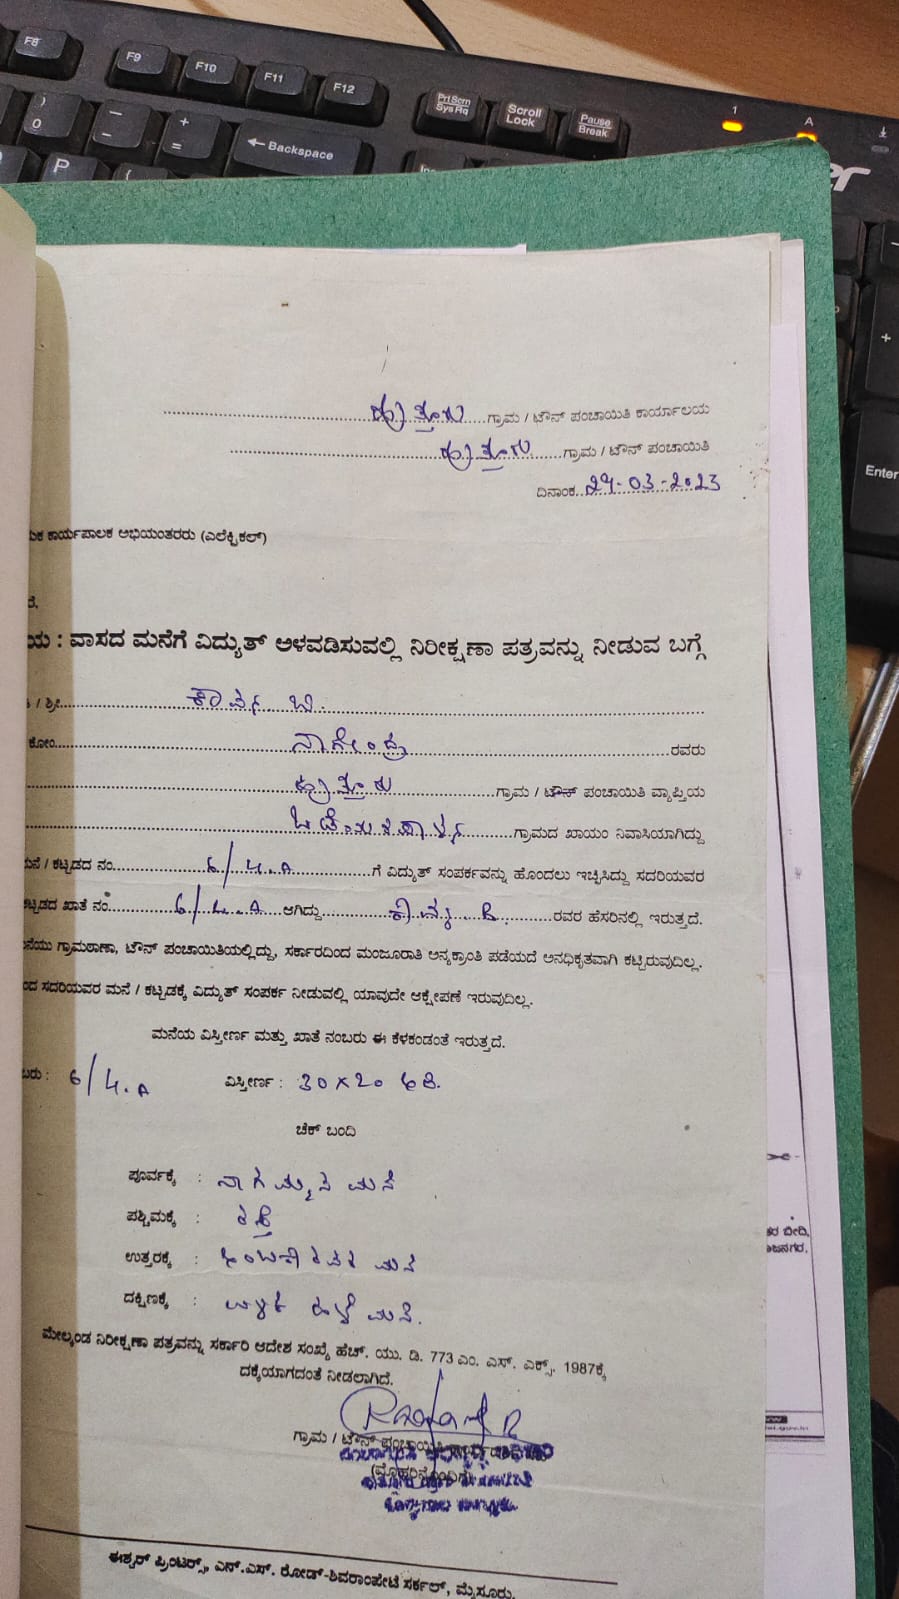 F8
F9 F10 F11 F12
Prt Scrn Sys Rq
Scroll Lock
Pause Break
1 A
) 0
– -
+ =
← Backspace
P {
Ins
+
Enter
ಗ್ರಾಮ / ಟೌನ್ ಪಂಚಾಯಿತಿ ಕಾರ್ಯಾಲಯ
ಗ್ರಾಮ / ಟೌನ್ ಪಂಚಾಯಿತಿ
ದಿನಾಂಕ 29-03-2023
ಕಾರ್ಯಪಾಲಕ ಅಭಿಯಂತರರು (ಎಲೆಕ್ಟ್ರಿಕಲ್)
ರೆ,
ಯ : ವಾಸದ ಮನೆಗೆ ವಿದ್ಯುತ್ ಅಳವಡಿಸುವಲ್ಲಿ ನಿರೀಕ್ಷಣಾ ಪತ್ರವನ್ನು ನೀಡುವ ಬಗ್ಗೆ
/ ಶ್ರೀ ಕಾವ್ಯ ಬಿ.
ಕೋಂ ನಾಗೇಂದ್ರ ರವರು
ಗ್ರಾಮ / ಟೌನ್ ಪಂಚಾಯಿತಿ ವ್ಯಾಪ್ತಿಯ
ಗ್ರಾಮದ ಖಾಯಂ ನಿವಾಸಿಯಾಗಿದ್ದು
ಮನೆ / ಕಟ್ಟಡದ ನಂ 6/4.A ಗೆ ವಿದ್ಯುತ್ ಸಂಪರ್ಕವನ್ನು ಹೊಂದಲು ಇಚ್ಛಿಸಿದ್ದು ಸದರಿಯವರ
ಕಟ್ಟಡದ ಖಾತೆ ನಂ 6/4.A ಆಗಿದ್ದು ರವರ ಹೆಸರಿನಲ್ಲಿ ಇರುತ್ತದೆ.
ನೆಯು ಗ್ರಾಮಠಾಣಾ, ಟೌನ್ ಪಂಚಾಯಿತಿಯಲ್ಲಿದ್ದು, ಸರ್ಕಾರದಿಂದ ಮಂಜೂರಾತಿ ಅನ್ಯಕ್ರಾಂತಿ ಪಡೆಯದೆ ಅನಧಿಕೃತವಾಗಿ ಕಟ್ಟಿರುವುದಿಲ್ಲ.
ಂದ ಸದರಿಯವರ ಮನೆ / ಕಟ್ಟಡಕ್ಕೆ ವಿದ್ಯುತ್ ಸಂಪರ್ಕ ನೀಡುವಲ್ಲಿ ಯಾವುದೇ ಆಕ್ಷೇಪಣೆ ಇರುವುದಿಲ್ಲ.
ಮನೆಯ ವಿಸ್ತೀರ್ಣ ಮತ್ತು ಖಾತೆ ನಂಬರು ಈ ಕೆಳಕಂಡಂತೆ ಇರುತ್ತದೆ.
ಬರು : 6/4.A ವಿಸ್ತೀರ್ಣ : 30x20 ಅಡಿ.
ಚೆಕ್ ಬಂದಿ
ಪೂರ್ವಕ್ಕೆ : ನಾಗಮ್ಮನ ಮನೆ
ಪಶ್ಚಿಮಕ್ಕೆ : ರಸ್ತೆ
ಉತ್ತರಕ್ಕೆ : ಮನೆ
ದಕ್ಷಿಣಕ್ಕೆ : ಮನೆ.
ಮೇಲ್ಕಂಡ ನಿರೀಕ್ಷಣಾ ಪತ್ರವನ್ನು ಸರ್ಕಾರಿ ಆದೇಶ ಸಂಖ್ಯೆ ಹೆಚ್. ಯು. ಡಿ. 773 ಎಂ. ಎಸ್. ಎಕ್ಸ್. 1987ಕ್ಕೆ
ದಕ್ಕೆಯಾಗದಂತೆ ನೀಡಲಾಗಿದೆ.
ಗ್ರಾಮ / ಟೌನ್ ಪಂಚಾಯಿತಿ
(ಮೊಹರಿನೊಂದಿಗೆ)
ಈಶ್ವರ್ ಪ್ರಿಂಟರ್ಸ್, ಎನ್.ಎಸ್. ರೋಡ್-ಶಿವರಾಂಪೇಟೆ ಸರ್ಕಲ್, ಮೈಸೂರು.